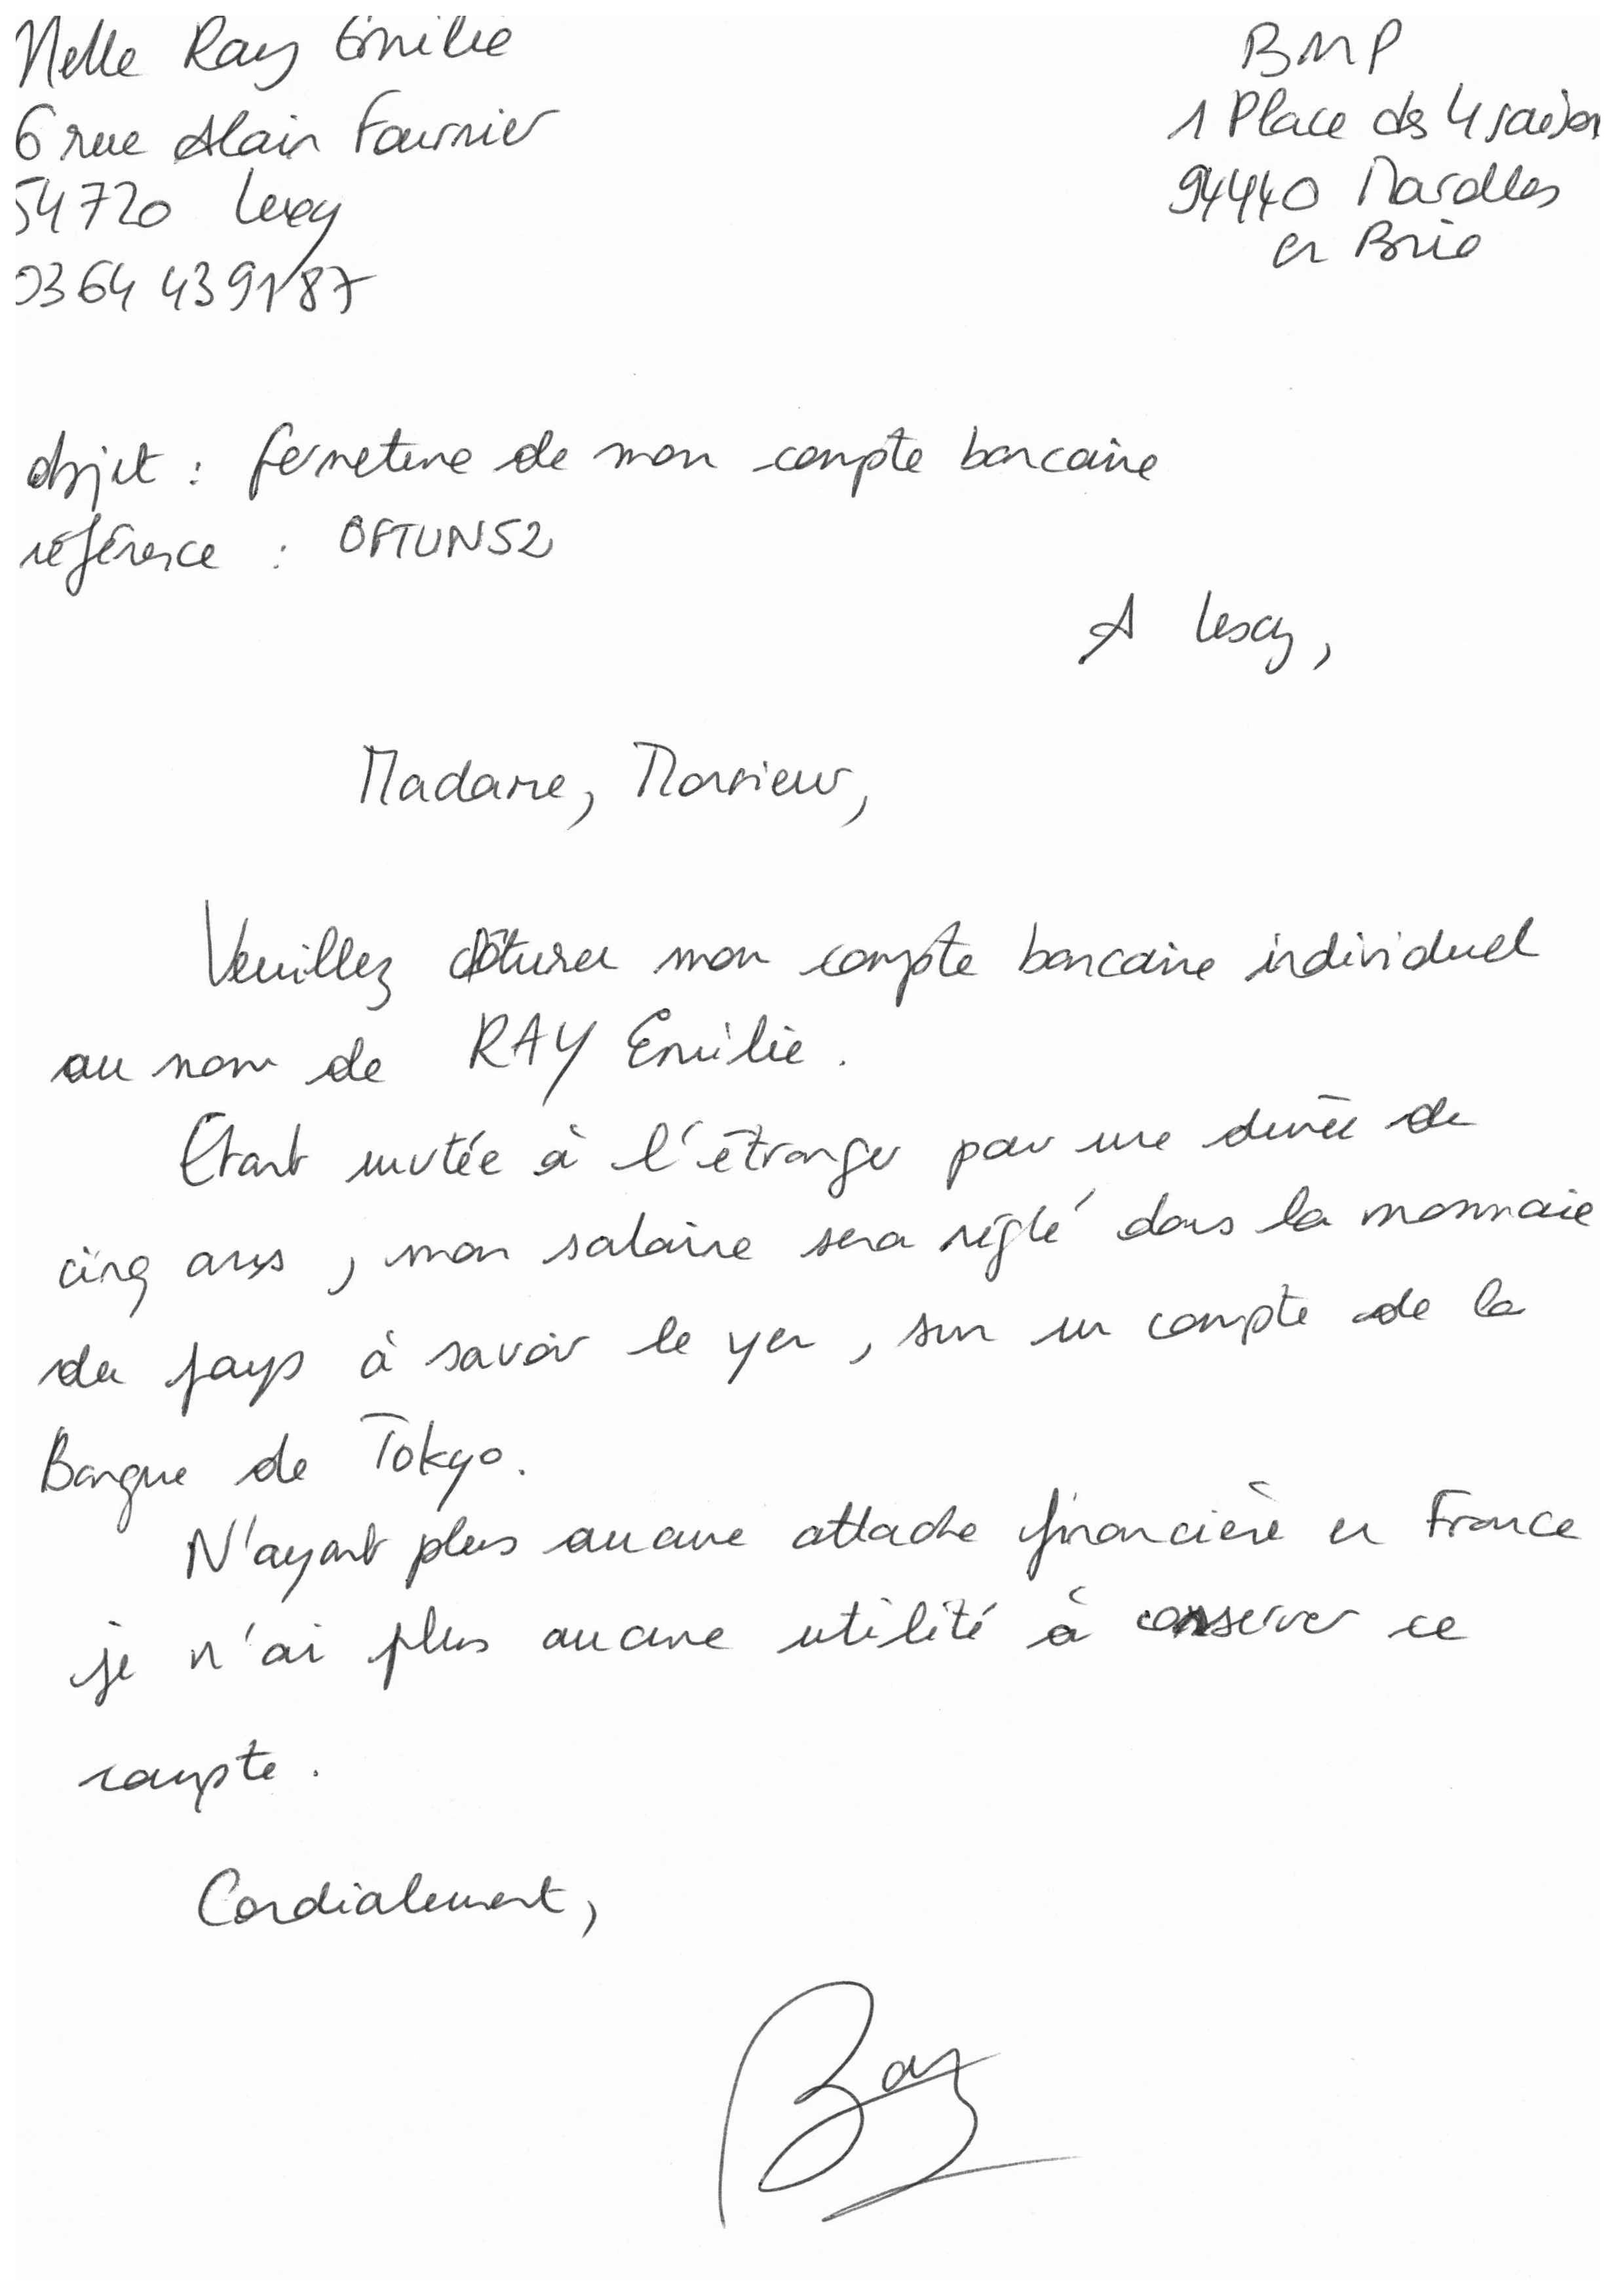 Melle Ray Emilie
6 rue Alain Fournier
54720 Lexy
0364439187
BNP
1 Place des 4 saison
94440 Marolles
en Brie
objet : fermeture de mon compte bancaire
référence : OFTUN52
A Lexy,
Madame, Monsieur,
Veuillez clôturer mon compte bancaire individuel
au nom de RAY Emilie.
Etant mutée à l'étranger pour une durée de
cinq ans, mon salaire sera réglé dans la monnaie
du pays à savoir le yen, sur un compte de la
Banque de Tokyo.
N'ayant plus aucune attache financière en France
je n'ai plus aucune utilité à conserver ce
compte.
Cordialement,
Ray